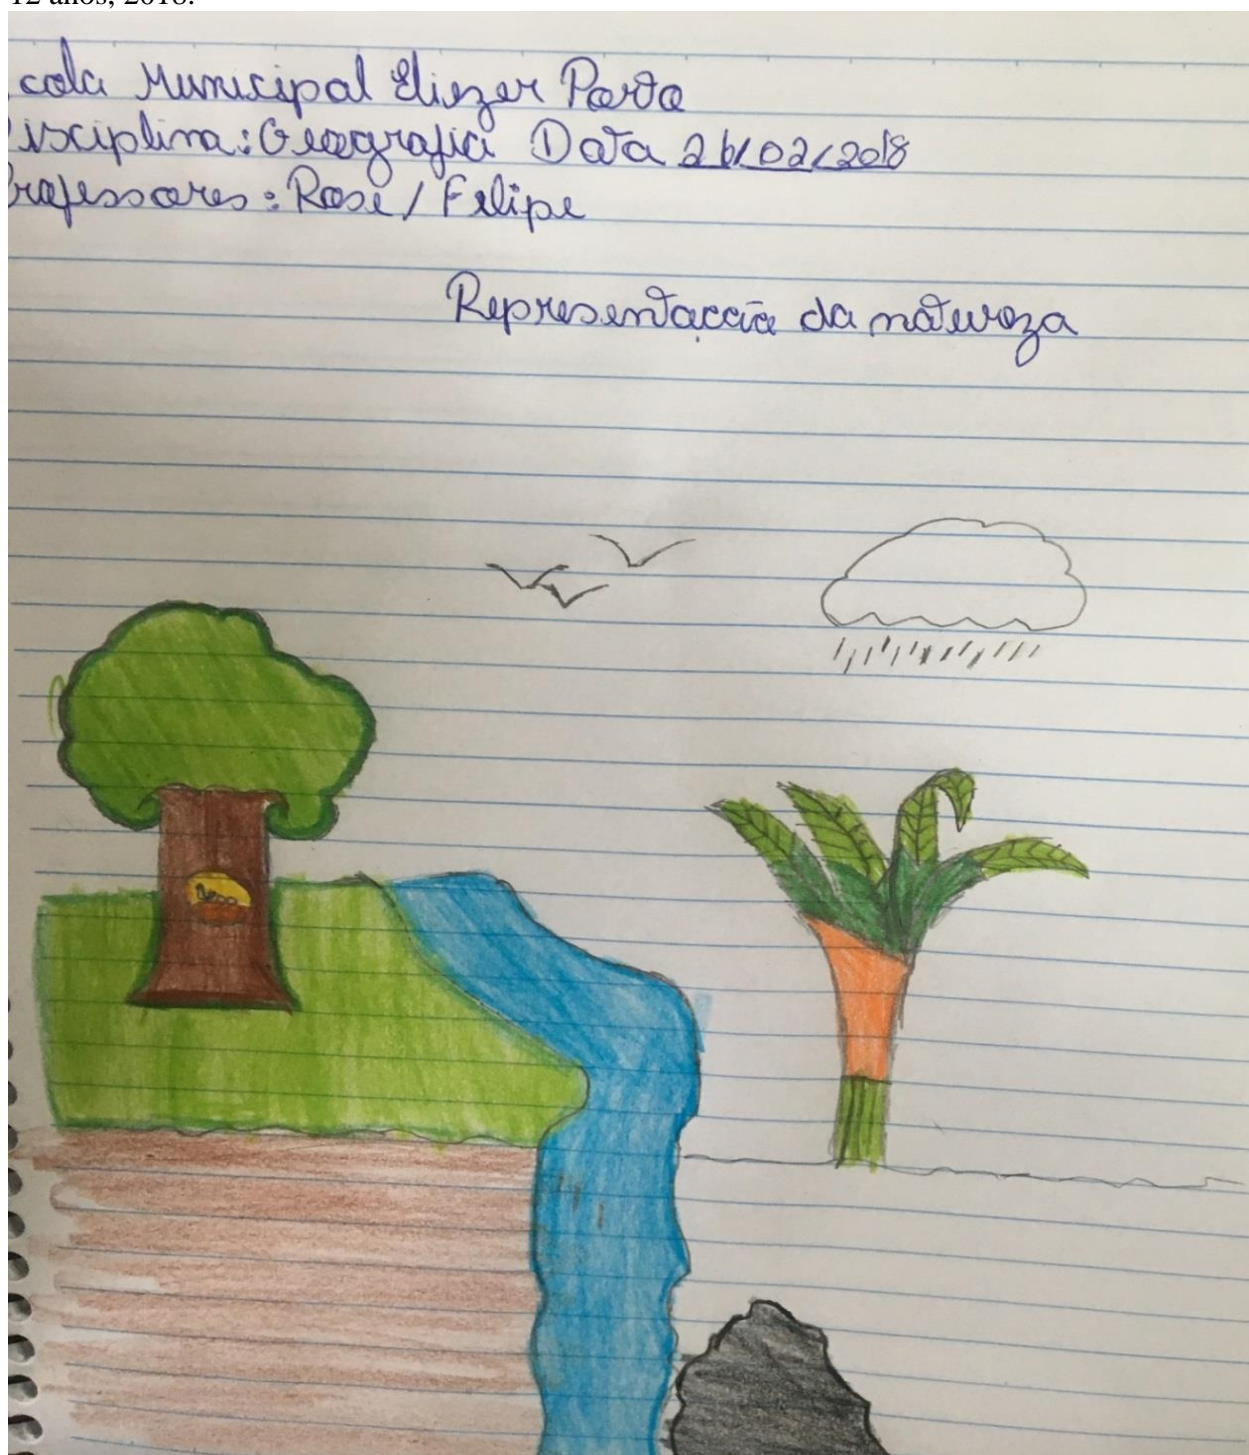 12 anos, 2018.
cola Municipal Eliezer Porto
isciplina: Geografia Data 26/02/2018
rofessores: Rose / Felipe
Representação da natureza